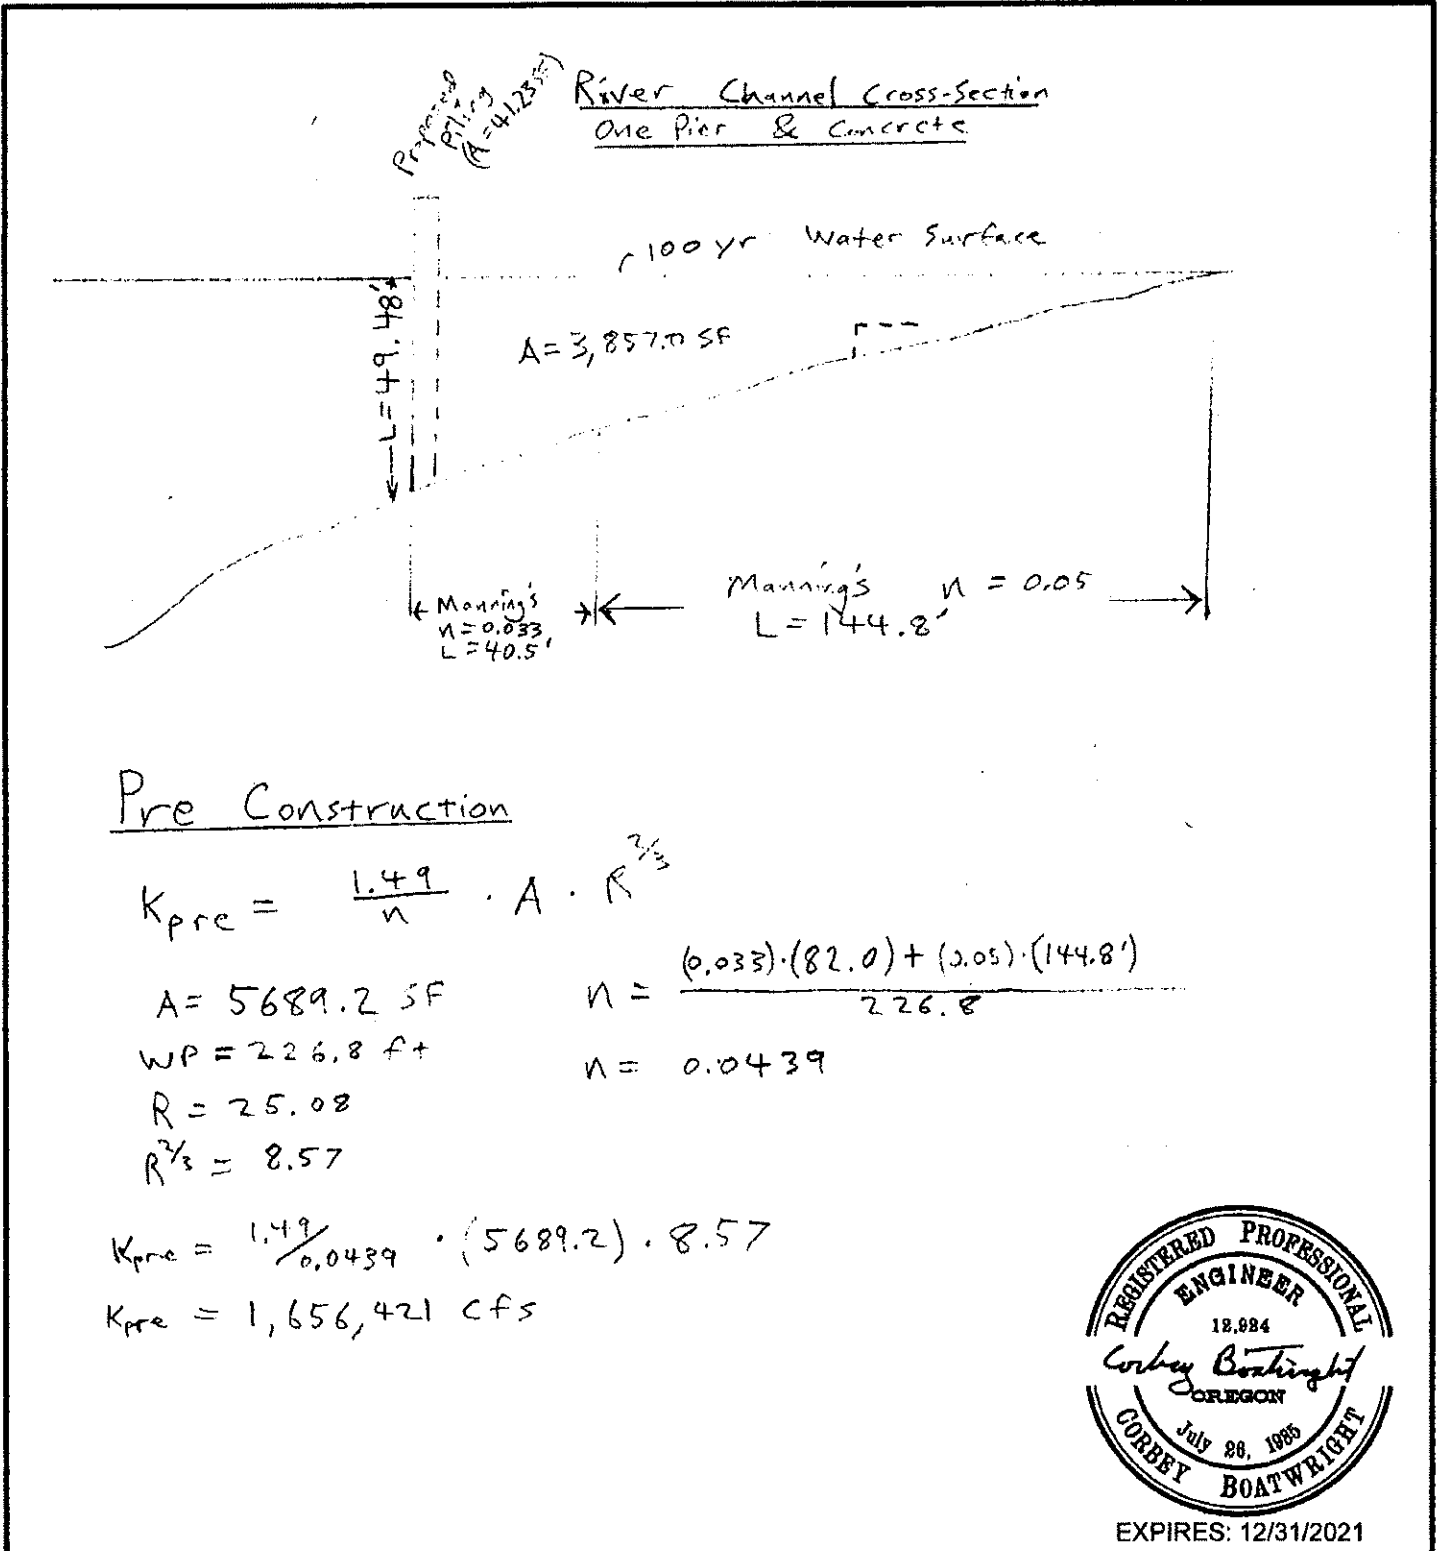 River Channel Cross-Section
One Pier & Concrete
Proposed
Piling
(A=41.23 SF)
100 yr Water Surface
L=49.48'
A=3,857.7 SF
Manning's
n=0.033
L=40.5'
Manning's n = 0.05
L=144.8'
Pre Construction
Kpre = 1.49/n · A · R^2/3
A= 5689.2 SF
WP = 226.8 ft
R = 25.08
R^2/3 = 8.57
n = (0.033)·(82.0) + (0.05)·(144.8') / 226.8
n = 0.0439
Kpre = 1.49/0.0439 · (5689.2) · 8.57
Kpre = 1,656,421 cfs
REGISTERED PROFESSIONAL
ENGINEER
12,924
Corbey Boatwright
OREGON
July 26, 1985
CORBEY BOATWRIGHT
EXPIRES: 12/31/2021